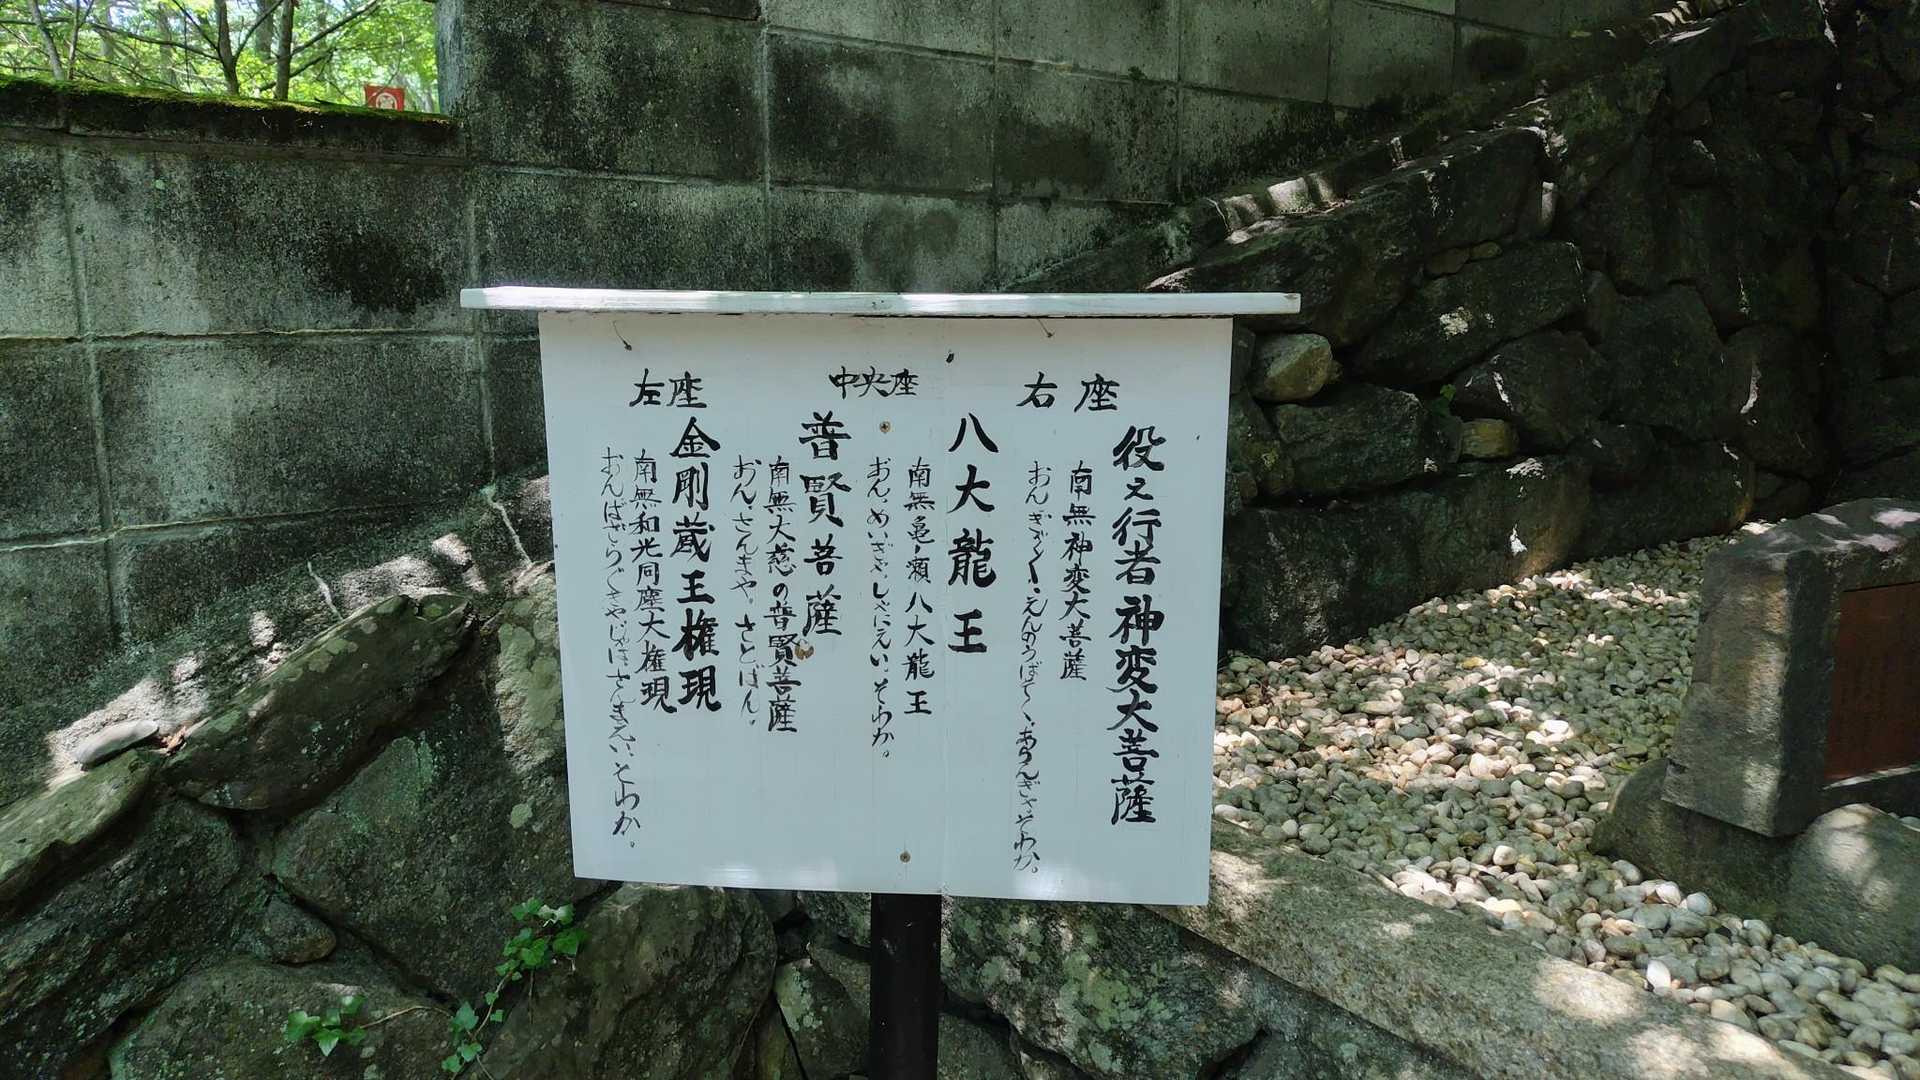 右座
役之行者神変大菩薩
南無神変大菩薩
おん・ぎゃくぎゃく・えんのうばそく・あらんぎゃそわか。
中央座
八大龍王
南無亀ノ瀬八大龍王
おん・めいぎゃ・しゃにえい・そわか。
普賢菩薩
南無大慈の普賢菩薩
おん・さんまや・さとばん。
左座
金剛蔵王権現
南無和光同座大権現
おんばざらくしゃ